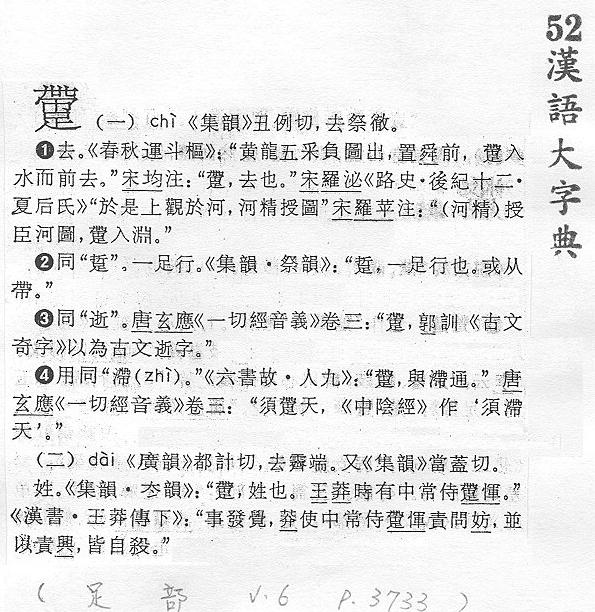 52漢語大字典
䠠 (一) chì《集韻》丑例切，去祭徹。
❶去。《春秋運斗樞》：“黄龍五采負圖出，置舜前，䠠入
水而前去。”宋均注：“䠠，去也。”宋羅泌《路史·後紀十二·
夏后氏》“於是上觀於河，河精授圖”宋羅苹注：“(河精)授
臣河圖，䠠入淵。”
❷同“踅”。一足行。《集韻·祭韻》：“踅，一足行也。或从
帶。”
❸同“逝”。唐玄應《一切經音義》卷三：“䠠，郭訓《古文
奇字》以為古文逝字。”
❹用同“滯(zhì)。”《六書故·人九》：“䠠，與滯通。”唐
玄應《一切經音義》卷三：“須䠠天，《中陰經》作‘須滯
天’。”
(二) dài《廣韻》都計切，去霽端。又《集韻》當蓋切。
姓。《集韻·夳韻》：“䠠，姓也。王莽時有中常侍䠠惲。”
《漢書·王莽傳下》：“事發覺，莽使中常侍䠠惲責問妨，並
以責興，皆自殺。”
( 足 部 V.6 P.3733 )